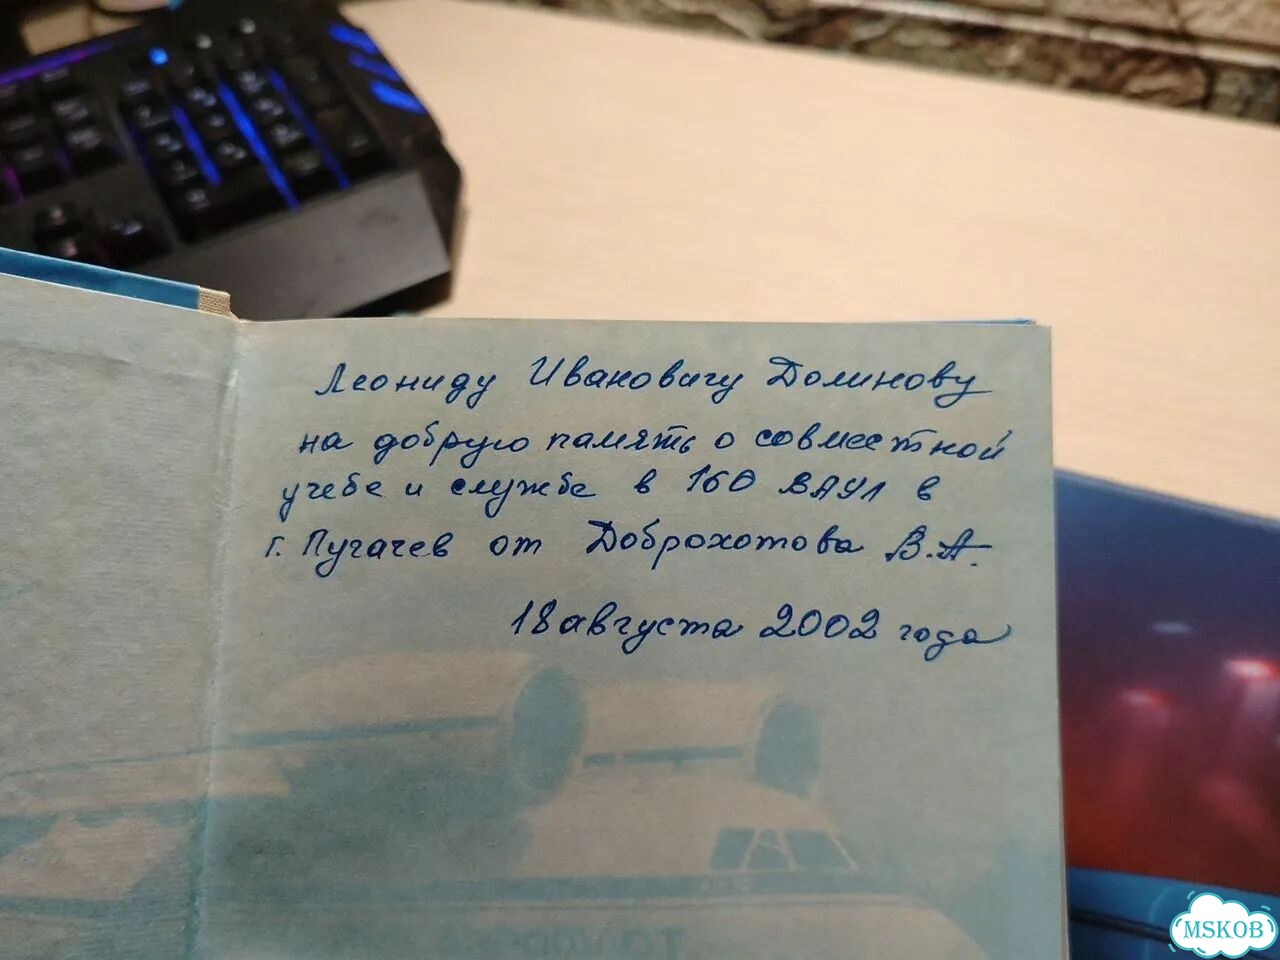 Леониду Ивановичу Долинову
на добрую память о совместной
учебе и службе в 160 ВАУЛ в
г. Пугачев от Доброхотова В.А.
18 августа 2002 года
MSKOB